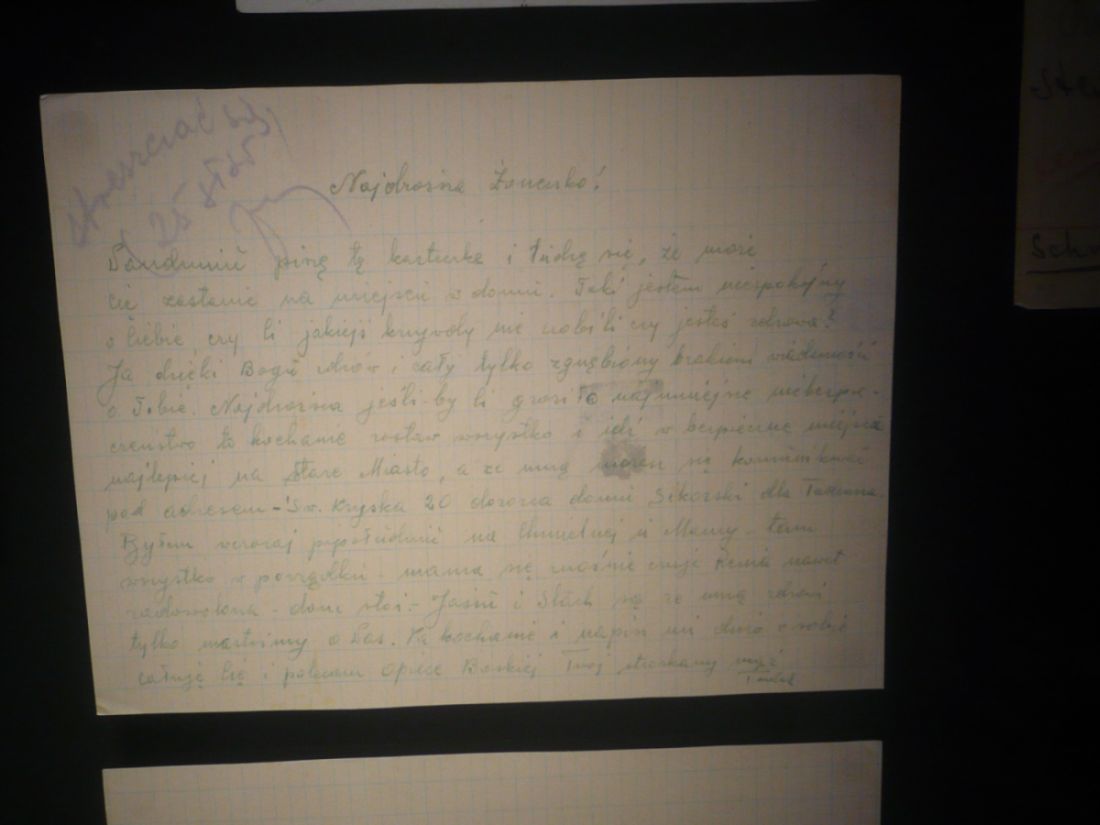 streszczać się
25 słów
Najdroższa Żonenko!
piszę tę karteczkę i łudzę się, że może
cię zastanie na miejscu w domu. Taki jestem niespokojny
o Ciebie, czy Ci jakiejś krzywdy nie zrobili czy jesteś zdrowa?
Ja dzięki Bogu zdrów i cały tylko zgnębiony brakiem wiadomości
o Tobie. Najdroższa jeśli-by Ci groziło najmniejsze niebezpie-
czeństwo to kochanie zostaw wszystko i idź w bezpieczne miejsce
najlepiej na Stare Miasto, a ze mną możesz się komunikować
pod adresem - Św. Krzyska 20 dozorca domu Sikorski dla Tadeusza.
Byłem wczoraj popołudniu na Chmielnej u Mamy - tam
wszystko w porządku - mama się znośnie czuje Renia nawet
zadowolona - dom stoi - Jasiu i Stach są ze mną zdrowi
tylko martwimy o Was. kochanie i napisz mi dużo o sobie
całuję Cię i polecam Opiece Boskiej Twój stroskany mąż
Tadek
Sch